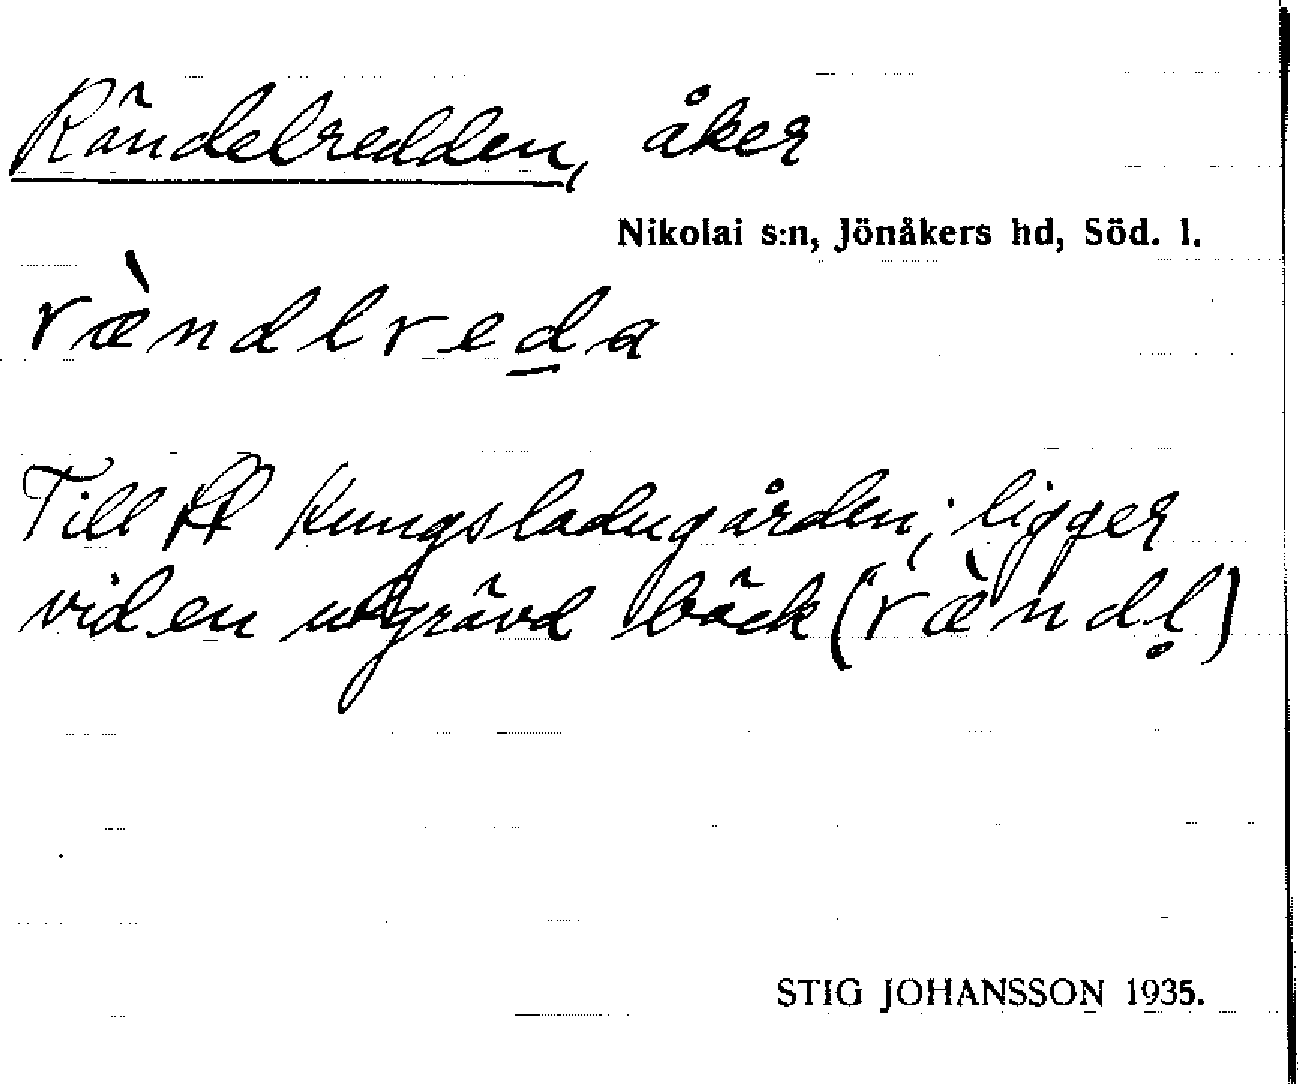 Rändelredden, åker
Nikolai s:n, Jönåkers hd, Söd. l.
ræ̀ndlred̲a
Till Kungsladugården; ligger
vid en utgrävd bäck (ræ̀ndl̥)
STIG JOHANSSON 1935.